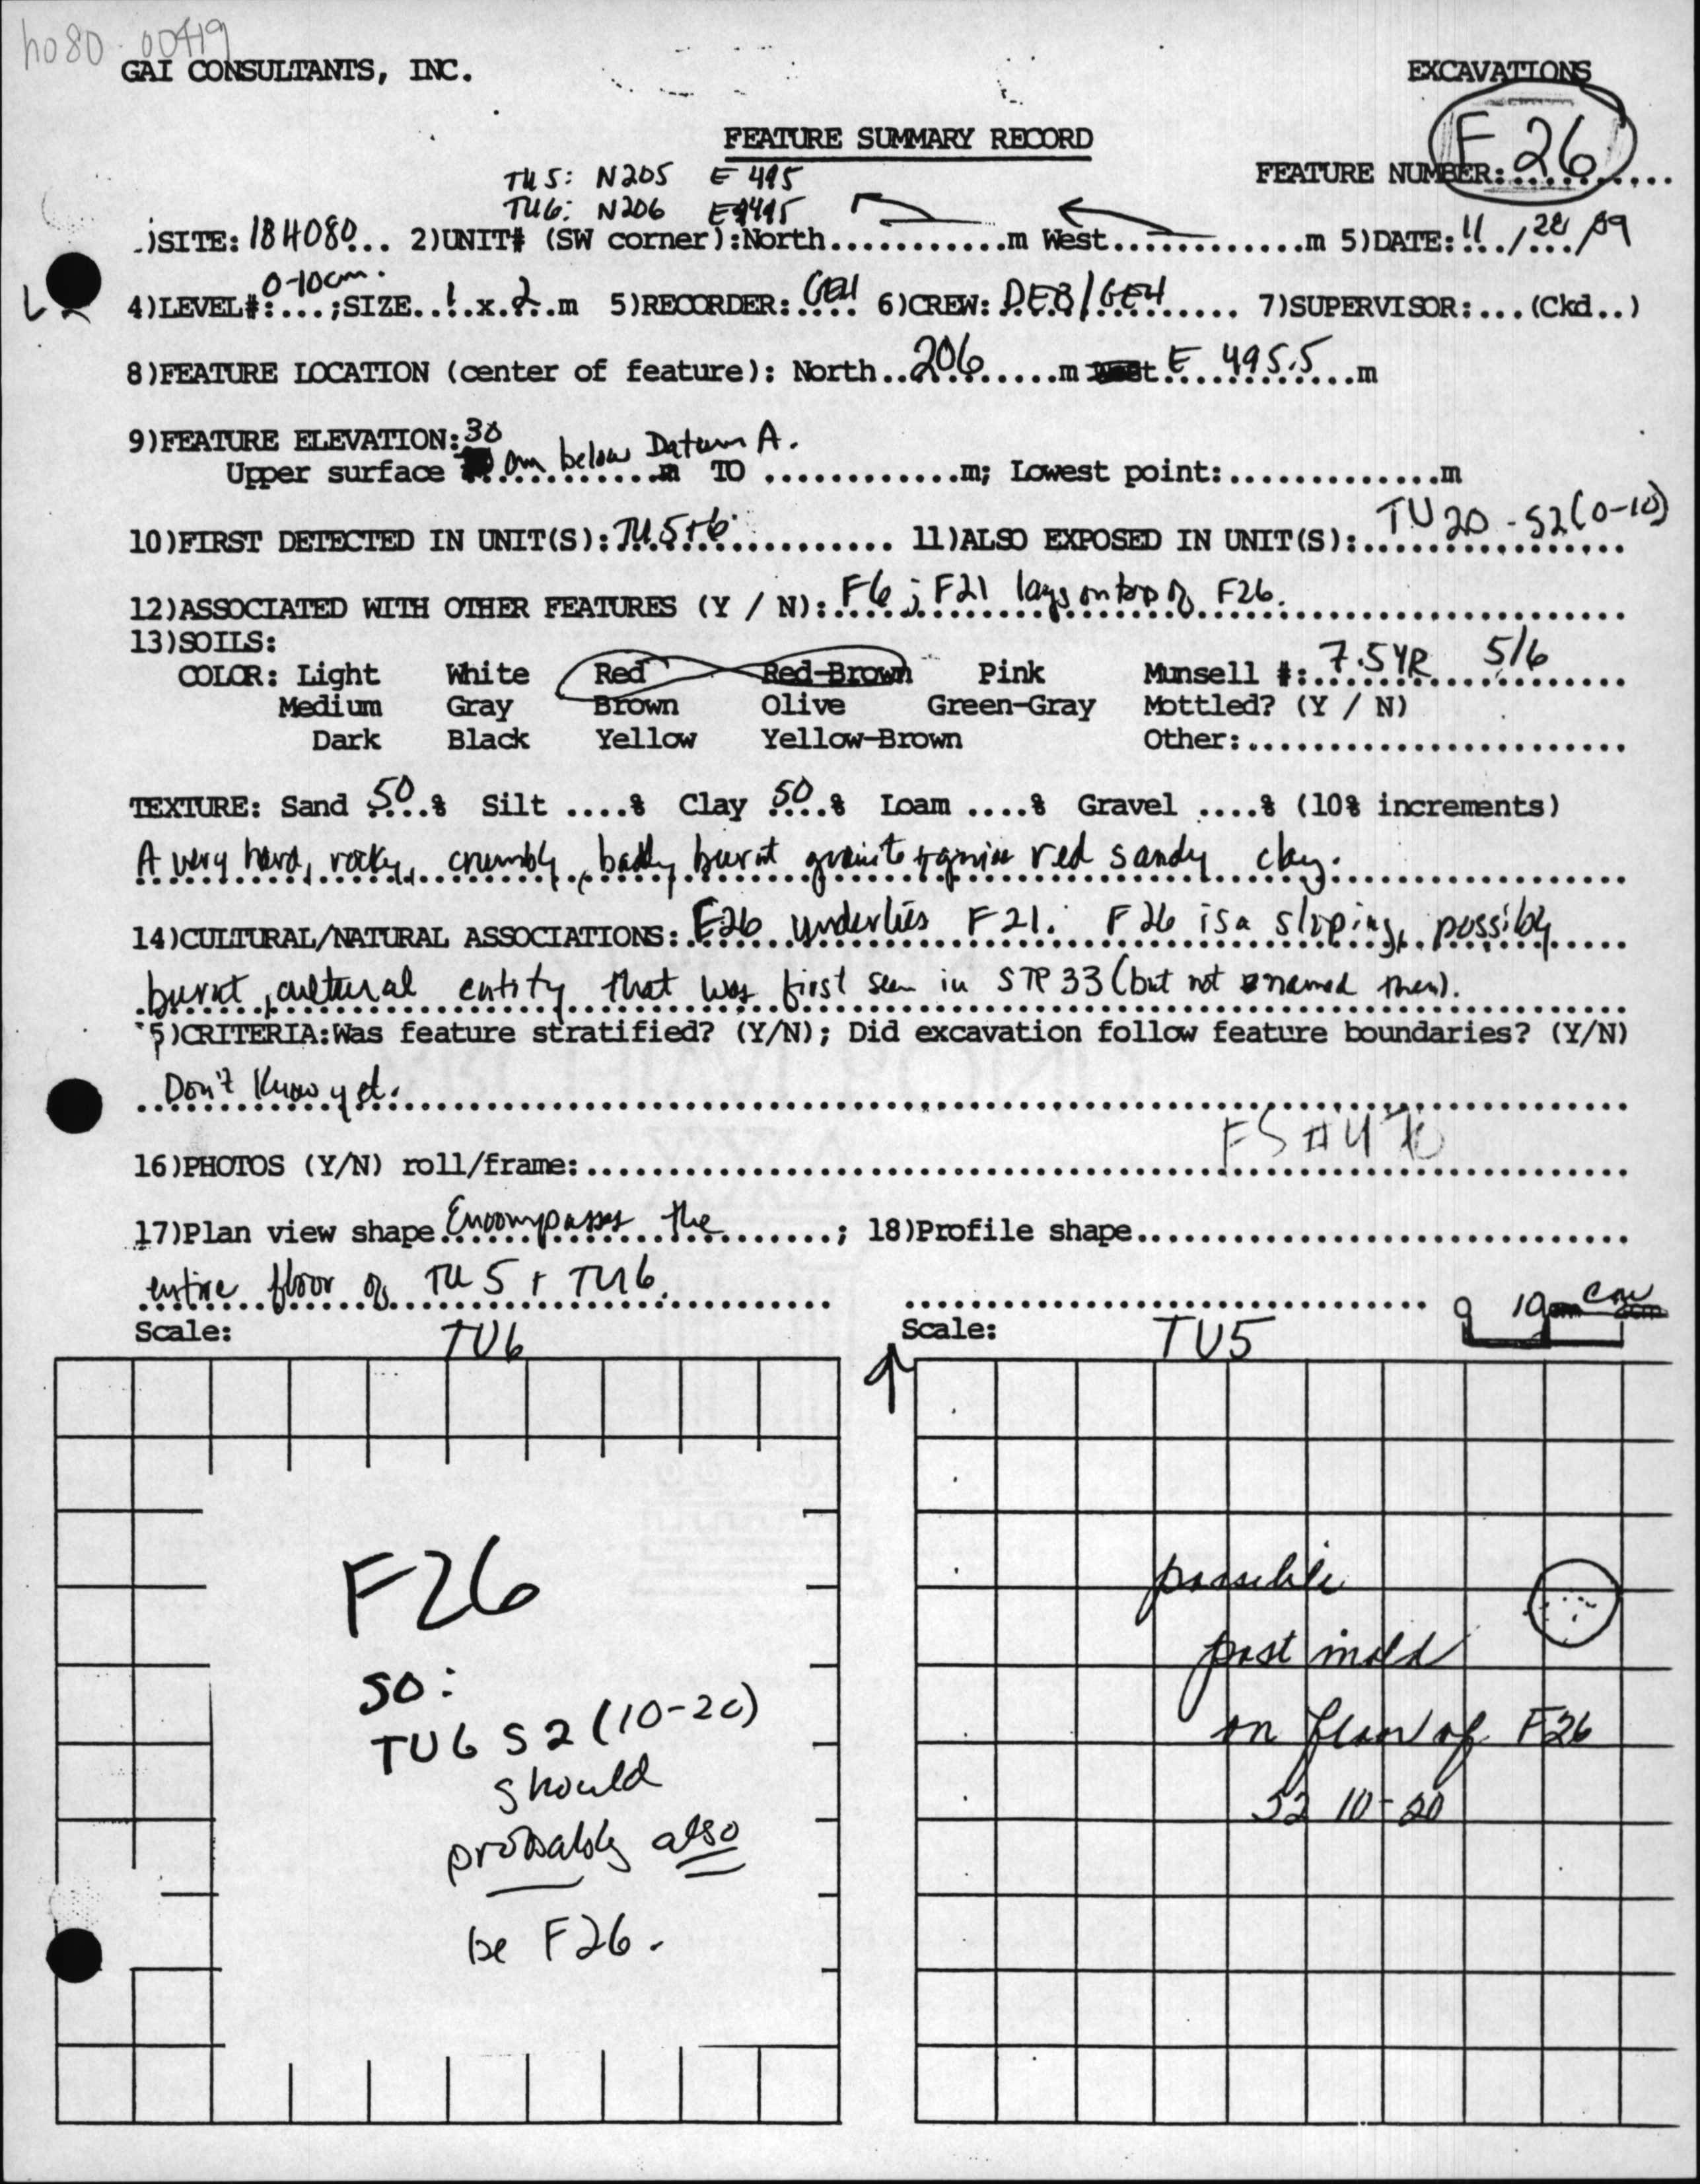 ho80-00419
GAI CONSULTANTS, INC. EXCAVATIONS
FEATURE SUMMARY RECORD
FEATURE NUMBER: F 26
TU5: N205 E 495
TU6: N206 E 495
.)SITE: 18HO80... 2)UNIT# (SW corner):North............m West............m 5)DATE: 11 / 28 / 89
0-10cm.
4)LEVEL#:...;SIZE..1.x.2.m 5)RECORDER: GEH 6)CREW: DEB/GEH 7)SUPERVISOR:...(Ckd..)
8)FEATURE LOCATION (center of feature): North..206......m West E 495.5 m
9)FEATURE ELEVATION: 30
Upper surface cm below Datum A. m TO ............m; Lowest point:..............m
10)FIRST DETECTED IN UNIT(S): TU 5+6 11)ALSO EXPOSED IN UNIT(S): TU 20 - S2 (0-10)
12)ASSOCIATED WITH OTHER FEATURES (Y / N): F6; F21 lays on top of F26.
13)SOILS:
COLOR: Light White Red Red-Brown Pink Munsell #: 7.5YR 5/6
Medium Gray Brown Olive Green-Gray Mottled? (Y / N)
Dark Black Yellow Yellow-Brown Other:
TEXTURE: Sand 50 % Silt ....% Clay 50 % Loam ....% Gravel ....% (10% increments)
A very hard, rocky, crumbly, badly burnt granite red sandy clay.
14)CULTURAL/NATURAL ASSOCIATIONS: F26 underlies F21. F26 is a sloping, possibly
burnt, cultural entity that was first seen in STP 33 (but not named then).
5)CRITERIA:Was feature stratified? (Y/N); Did excavation follow feature boundaries? (Y/N)
Don't know yet.
FS #470
16)PHOTOS (Y/N) roll/frame:
17)Plan view shape Encompasses the ; 18)Profile shape
entire floor of TU 5 + TU6.
0 10 cm
Scale: TU6 Scale: TU5
F26
so:
TU6 S2 (10-20)
should
probably also
be F26.
possible
post mold
on floor of F26
S2 10-20